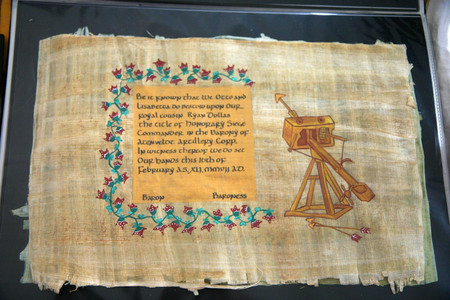 Be it known that We Otto and
Lisabetta do bestow upon Our
royal cousin Ryan Dollas
the title of Honorary Siege
Commander in the Barony of
Artillery Corp.
In witness thereof We do set
Our hands this 10th of
February A.S. XLI, MMVII A.D.
Baron Baroness